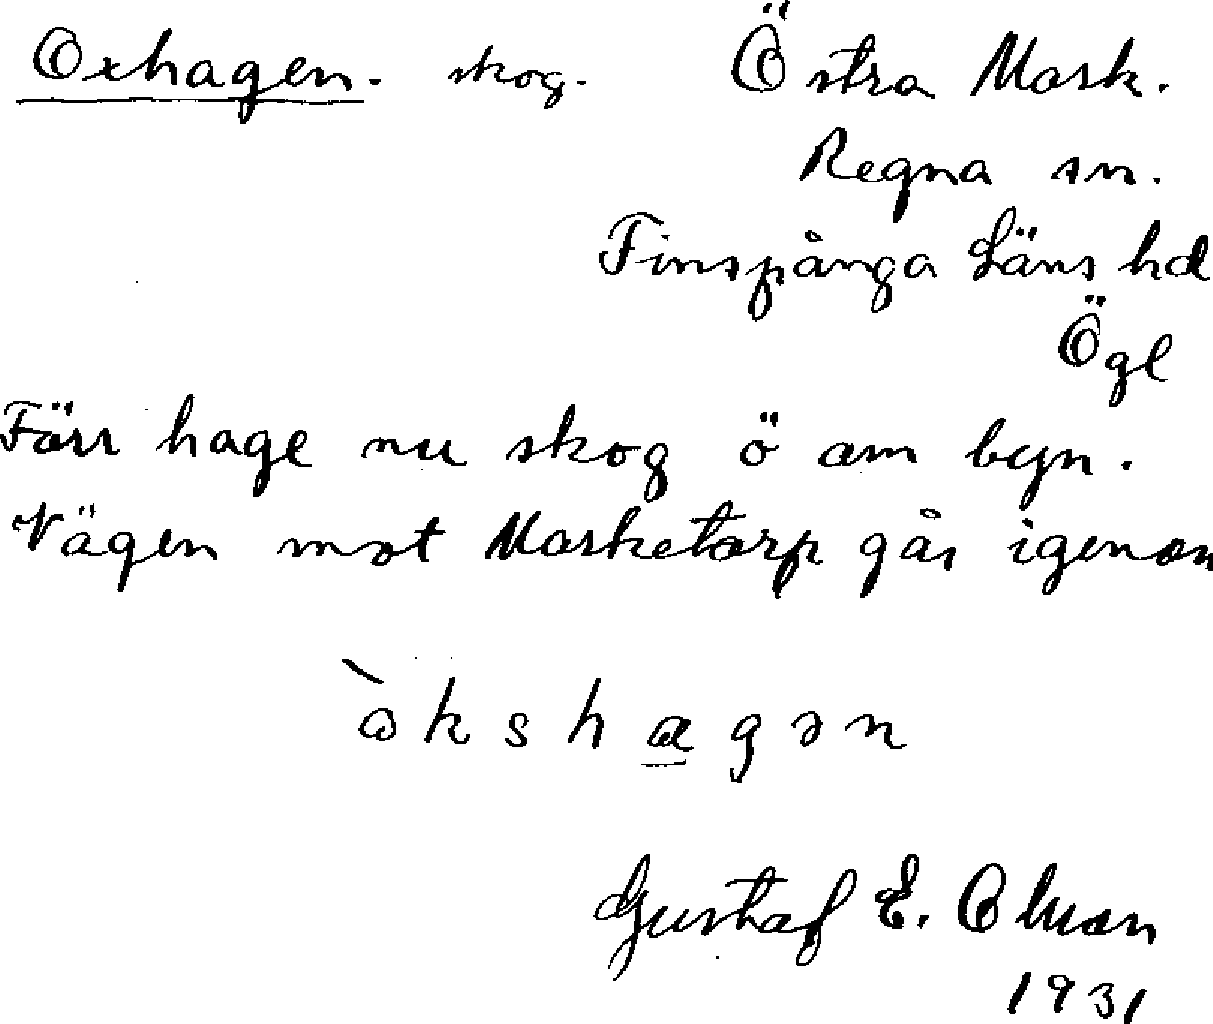 Oxhagen. skog. Östra Mark.
Regna sn.
Finspånga Läns hd
Ögl
Förr hage nu skog ö om byn.
Vägen mot Marketorp går igenom
òkshagən
Gustaf E.
1931